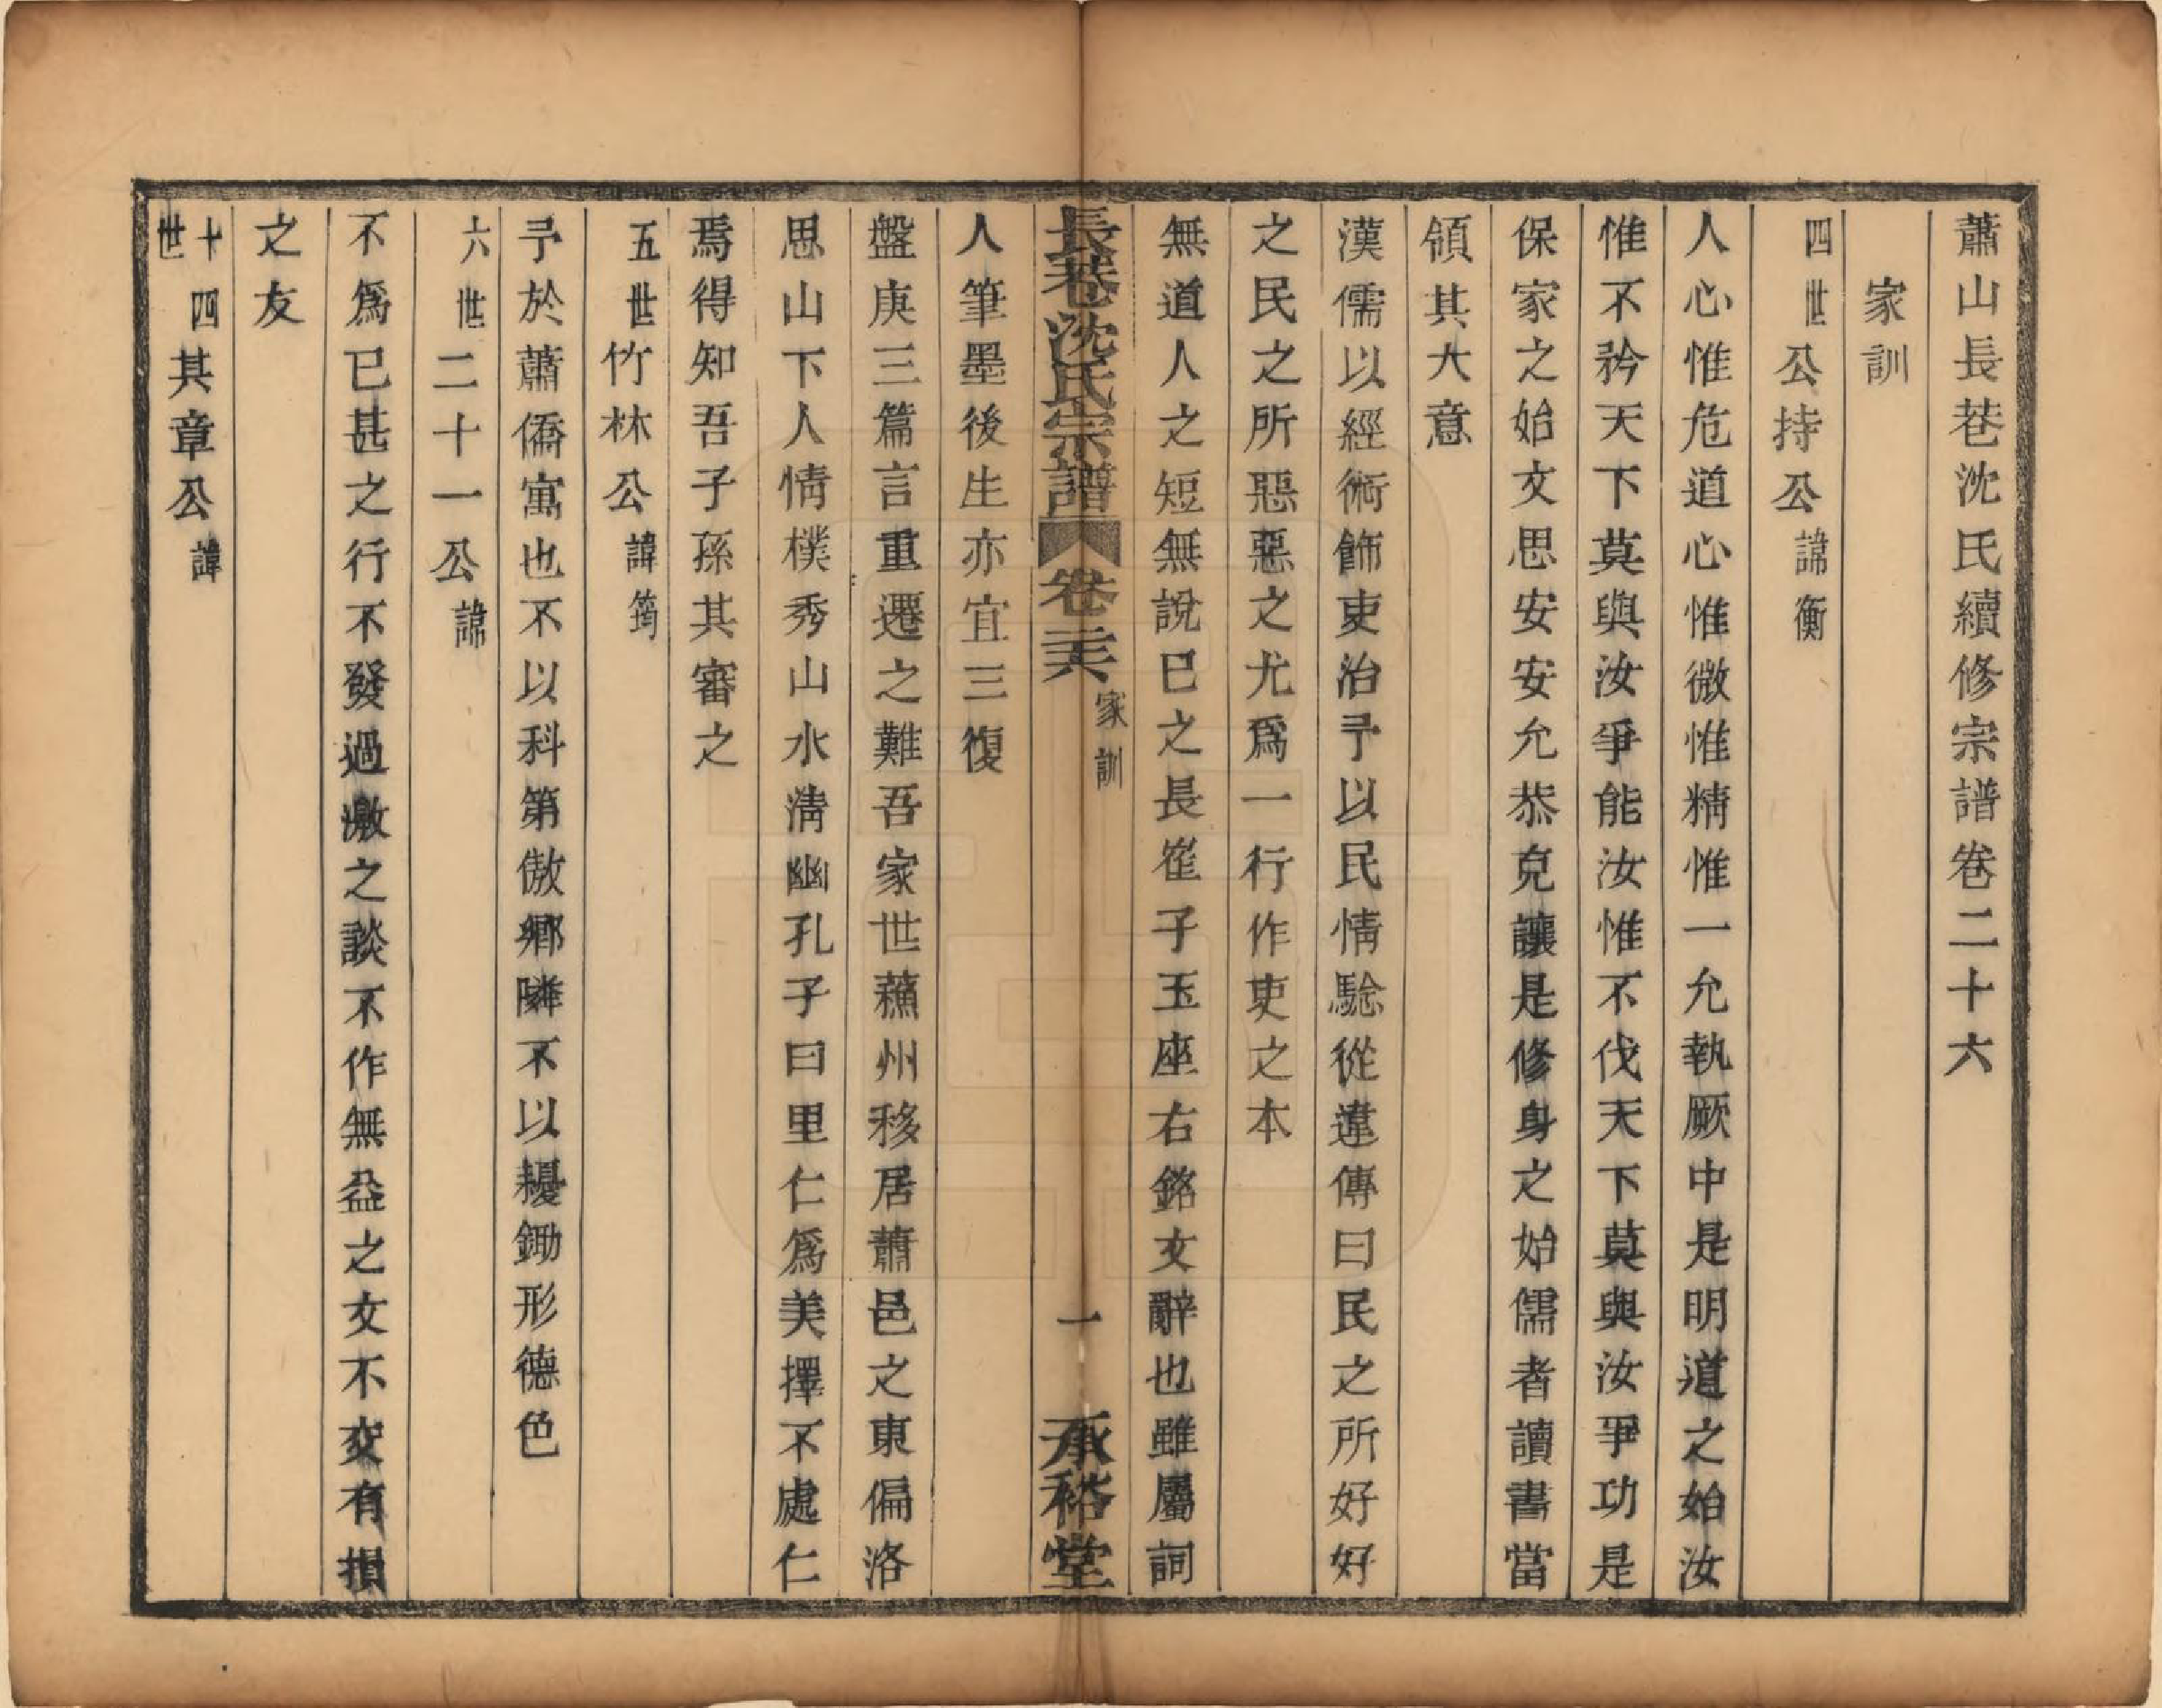 蕭山長巷沈氏續修宗譜卷二十六
家訓
四世公持公諱衡
人心惟危道心惟微惟精惟一允執厥中是明道之始汝
惟不矜天下莫與汝爭能汝惟不伐天下莫與汝爭功是
保家之始文思安安允恭克讓是修身之始儒者讀書當
領其大意
漢儒以經術飾吏治予以民情驗從違傳曰民之所好好
之民之所惡惡之尤爲一行作吏之本
無道人之短無說已之長崔子玉座右銘文辭也雖屬詞
長巷沈氏宗譜 卷二六 家訓 一 承裕堂
人筆墨後生亦宜三復
盤庚三篇言重遷之難吾家世蘇州移居蕭邑之東偏洛
思山下人情樸秀山水淸幽孔子曰里仁爲美擇不處仁
焉得知吾子孫其審之
五世竹林公諱筠
予於蕭僑寓也不以科第傲鄉隣不以耰鋤形德色
六世二十一公諱
不爲已甚之行不發過激之談不作無益之文不交有損
之友
十四世其章公諱